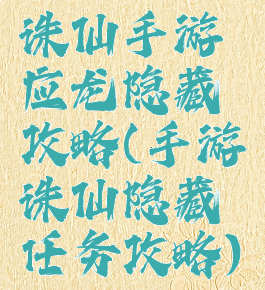 诛仙手游
应龙隐藏
攻略(手游
诛仙隐藏
任务攻略)